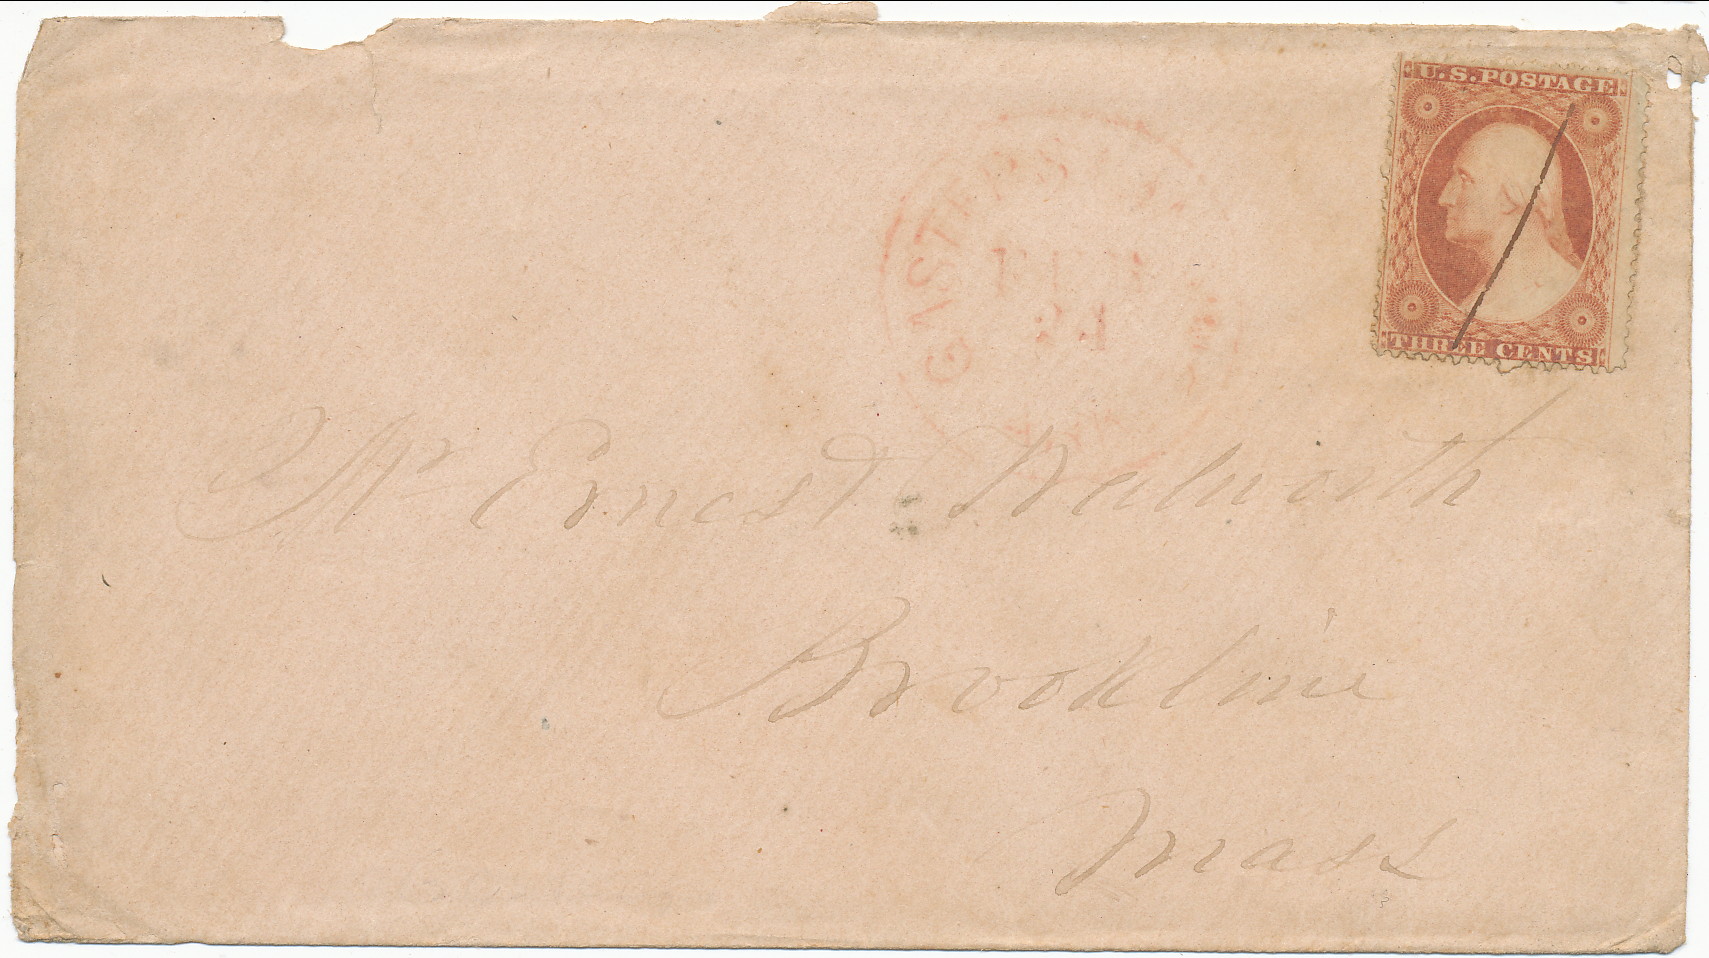 U.S. POSTAGE
THREE CENTS
Mr Ernest Walworth
Brookline
Mass